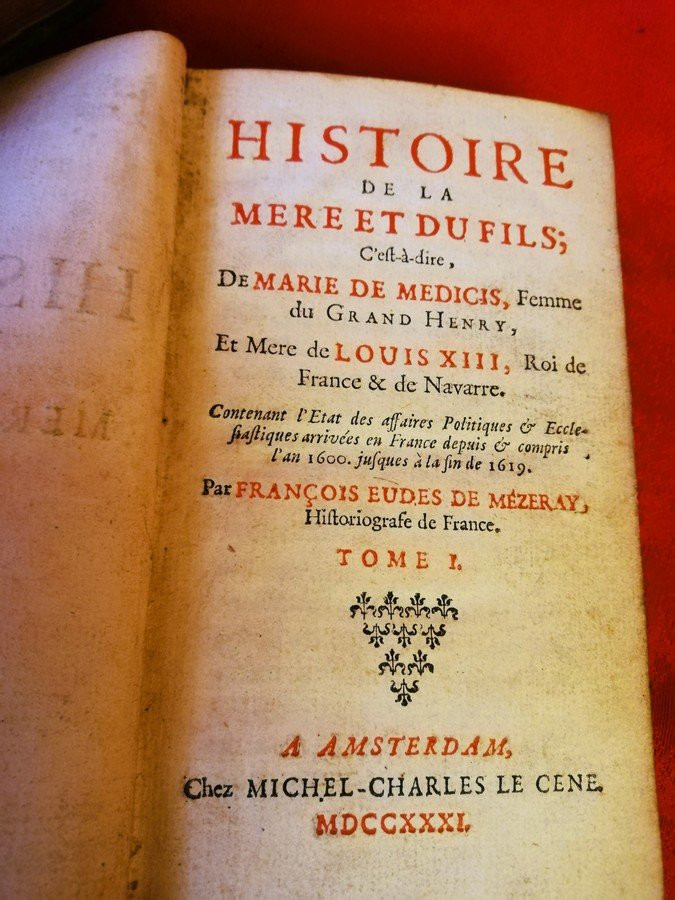 HISTOIRE
DE LA
MERE ET DU FILS;
C'eſt-à-dire,
DE MARIE DE MEDICIS, Femme
du GRAND HENRY,
Et Mere de LOUIS XIII, Roi de
France & de Navarre.
Contenant l'Etat des affaires Politiques & Eccle-
ſiaſtiques arrivées en France depuis & compris
l'an 1600. juſques à la fin de 1619.
Par FRANÇOIS EUDES DE MÉZERAY,
Hiſtoriografe de France.
TOME I.
A AMSTERDAM,
Chez MICHEL-CHARLES LE CENE.
MDCCXXXI.